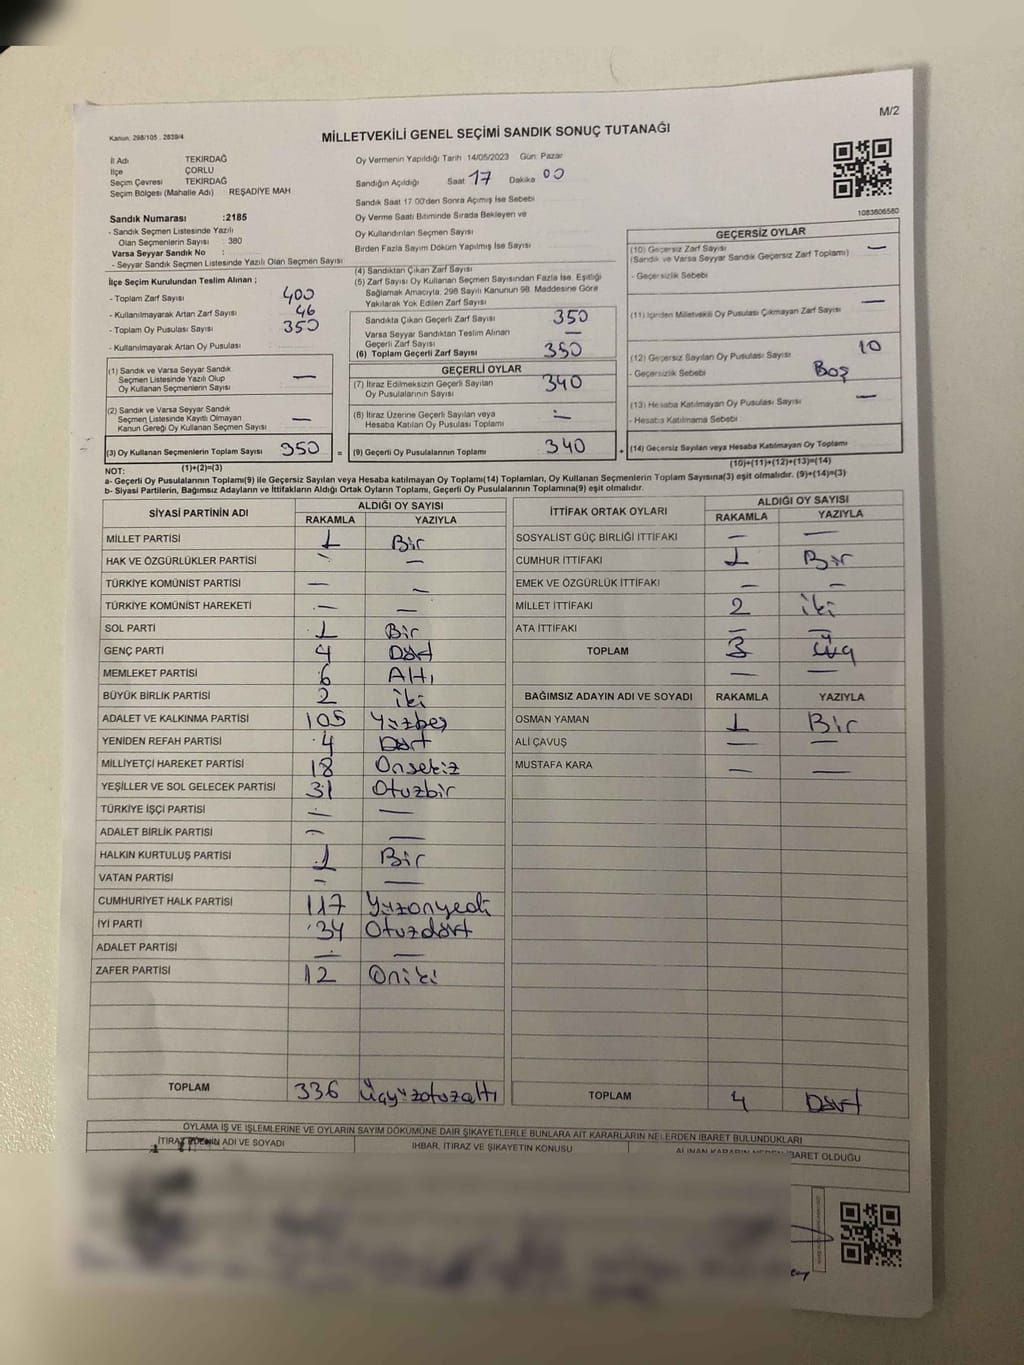 M/2
Kanun: 298/105 . 2839/4
MİLLETVEKİLİ GENEL SEÇİMİ SANDIK SONUÇ TUTANAĞI
İl Adı TEKİRDAĞ
İlçe ÇORLU
Seçim Çevresi TEKİRDAĞ
Seçim Bölgesi (Mahalle Adı) : REŞADİYE MAH
Sandık Numarası :2185
- Sandık Seçmen Listesinde Yazılı
Olan Seçmenlerin Sayısı : 380
Varsa Seyyar Sandık No :
- Seyyar Sandık Seçmen Listesinde Yazılı Olan Seçmen Sayısı
Oy Vermenin Yapıldığı Tarih 14/05/2023 Gün: Pazar
Sandığın Açıldığı Saat 17 Dakika 00
Sandık Saat 17.00'den Sonra Açılmış İse Sebebi
Oy Verme Saati Bitiminde Sırada Bekleyen ve
Oy Kullandırılan Seçmen Sayısı
Birden Fazla Sayım Döküm Yapılmış İse Sayısı
1083606560
İlçe Seçim Kurulundan Teslim Alınan ;
- Toplam Zarf Sayısı 400
- Kullanılmayarak Artan Zarf Sayısı 46
- Toplam Oy Pusulası Sayısı 350
- Kullanılmayarak Artan Oy Pusulası
(1) Sandık ve Varsa Seyyar Sandık
Seçmen Listesinde Yazılı Olup
Oy Kullanan Seçmenlerin Sayısı —
(2) Sandık ve Varsa Seyyar Sandık
Seçmen Listesinde Kayıtlı Olmayan
Kanun Gereği Oy Kullanan Seçmen Sayısı —
(3) Oy Kullanan Seçmenlerin Toplam Sayısı 350 =
(1)+(2)=(3)
(4) Sandıktan Çıkan Zarf Sayısı
(5) Zarf Sayısı Oy Kullanan Seçmen Sayısından Fazla İse, Eşitliği
Sağlamak Amacıyla, 298 Sayılı Kanunun 98. Maddesine Göre
Yakılarak Yok Edilen Zarf Sayısı
Sandıkta Çıkan Geçerli Zarf Sayısı 350
Varsa Seyyar Sandıktan Teslim Alınan
Geçerli Zarf Sayısı —
(6) Toplam Geçerli Zarf Sayısı 350
GEÇERLİ OYLAR
(7) İtiraz Edilmeksizin Geçerli Sayılan
Oy Pusulalarının Sayısı 340
(8) İtiraz Üzerine Geçerli Sayılan veya
Hesaba Katılan Oy Pusulası Toplamı —
(9) Geçerli Oy Pusulalarının Toplamı 340 +
GEÇERSİZ OYLAR
(10) Geçersiz Zarf Sayısı —
(Sandık ve Varsa Seyyar Sandık Geçersiz Zarf Toplamı)
- Geçersizlik Sebebi
(11) İçinden Milletvekili Oy Pusulası Çıkmayan Zarf Sayısı —
(12) Geçersiz Sayılan Oy Pusulası Sayısı 10
- Geçersizlik Sebebi Boş
(13) Hesaba Katılmayan Oy Pusulası Sayısı —
- Hesaba Katılmama Sebebi
(14) Geçersiz Sayılan veya Hesaba Katılmayan Oy Toplamı
(10)+(11)+(12)+(13)=(14)
NOT:
a- Geçerli Oy Pusulalarının Toplamı(9) ile Geçersiz Sayılan veya Hesaba katılmayan Oy Toplamı(14) Toplamları, Oy Kullanan Seçmenlerin Toplam Sayısına(3) eşit olmalıdır. (9)+(14)=(3)
b- Siyasi Partilerin, Bağımsız Adayların ve İttifakların Aldığı Ortak Oyların Toplamı, Geçerli Oy Pusulalarının Toplamına(9) eşit olmalıdır.
SİYASİ PARTİNİN ADI ALDIĞI OY SAYISI
RAKAMLA YAZIYLA
MİLLET PARTİSİ 1 Bir
HAK VE ÖZGÜRLÜKLER PARTİSİ — —
TÜRKİYE KOMÜNİST PARTİSİ — —
TÜRKİYE KOMÜNİST HAREKETİ — —
SOL PARTİ 1 Bir
GENÇ PARTİ 4 Dört
MEMLEKET PARTİSİ 6 Altı
BÜYÜK BİRLİK PARTİSİ 2 iki
ADALET VE KALKINMA PARTİSİ 105 Yüzbeş
YENİDEN REFAH PARTİSİ 4 Dört
MİLLİYETÇİ HAREKET PARTİSİ 18 Onsekiz
YEŞİLLER VE SOL GELECEK PARTİSİ 31 Otuzbir
TÜRKİYE İŞÇİ PARTİSİ — —
ADALET BİRLİK PARTİSİ — —
HALKIN KURTULUŞ PARTİSİ 1 Bir
VATAN PARTİSİ — —
CUMHURİYET HALK PARTİSİ 117 Yüzonyedi
İYİ PARTİ 34 Otuzdört
ADALET PARTİSİ — —
ZAFER PARTİSİ 12 Oniki
TOPLAM 336 Üçyüzotuzaltı
İTTİFAK ORTAK OYLARI ALDIĞI OY SAYISI
RAKAMLA YAZIYLA
SOSYALİST GÜÇ BİRLİĞİ İTTİFAKI — —
CUMHUR İTTİFAKI 1 Bir
EMEK VE ÖZGÜRLÜK İTTİFAKI — —
MİLLET İTTİFAKI 2 iki
ATA İTTİFAKI — —
TOPLAM 3 üç
— —
BAĞIMSIZ ADAYIN ADI VE SOYADI RAKAMLA YAZIYLA
OSMAN YAMAN 1 Bir
ALİ ÇAVUŞ — —
MUSTAFA KARA — —
TOPLAM 4 Dört
OYLAMA İŞ VE İŞLEMLERİNE VE OYLARIN SAYIM DÖKÜMÜNE DAİR ŞİKAYETLERLE BUNLARA AİT KARARLARIN NELERDEN İBARET BULUNDUKLARI
İTİRAZ EDENİN ADI VE SOYADI
İHBAR, İTİRAZ VE ŞİKAYETİN KONUSU
ALINAN KARARIN NEDEN İBARET OLDUĞU